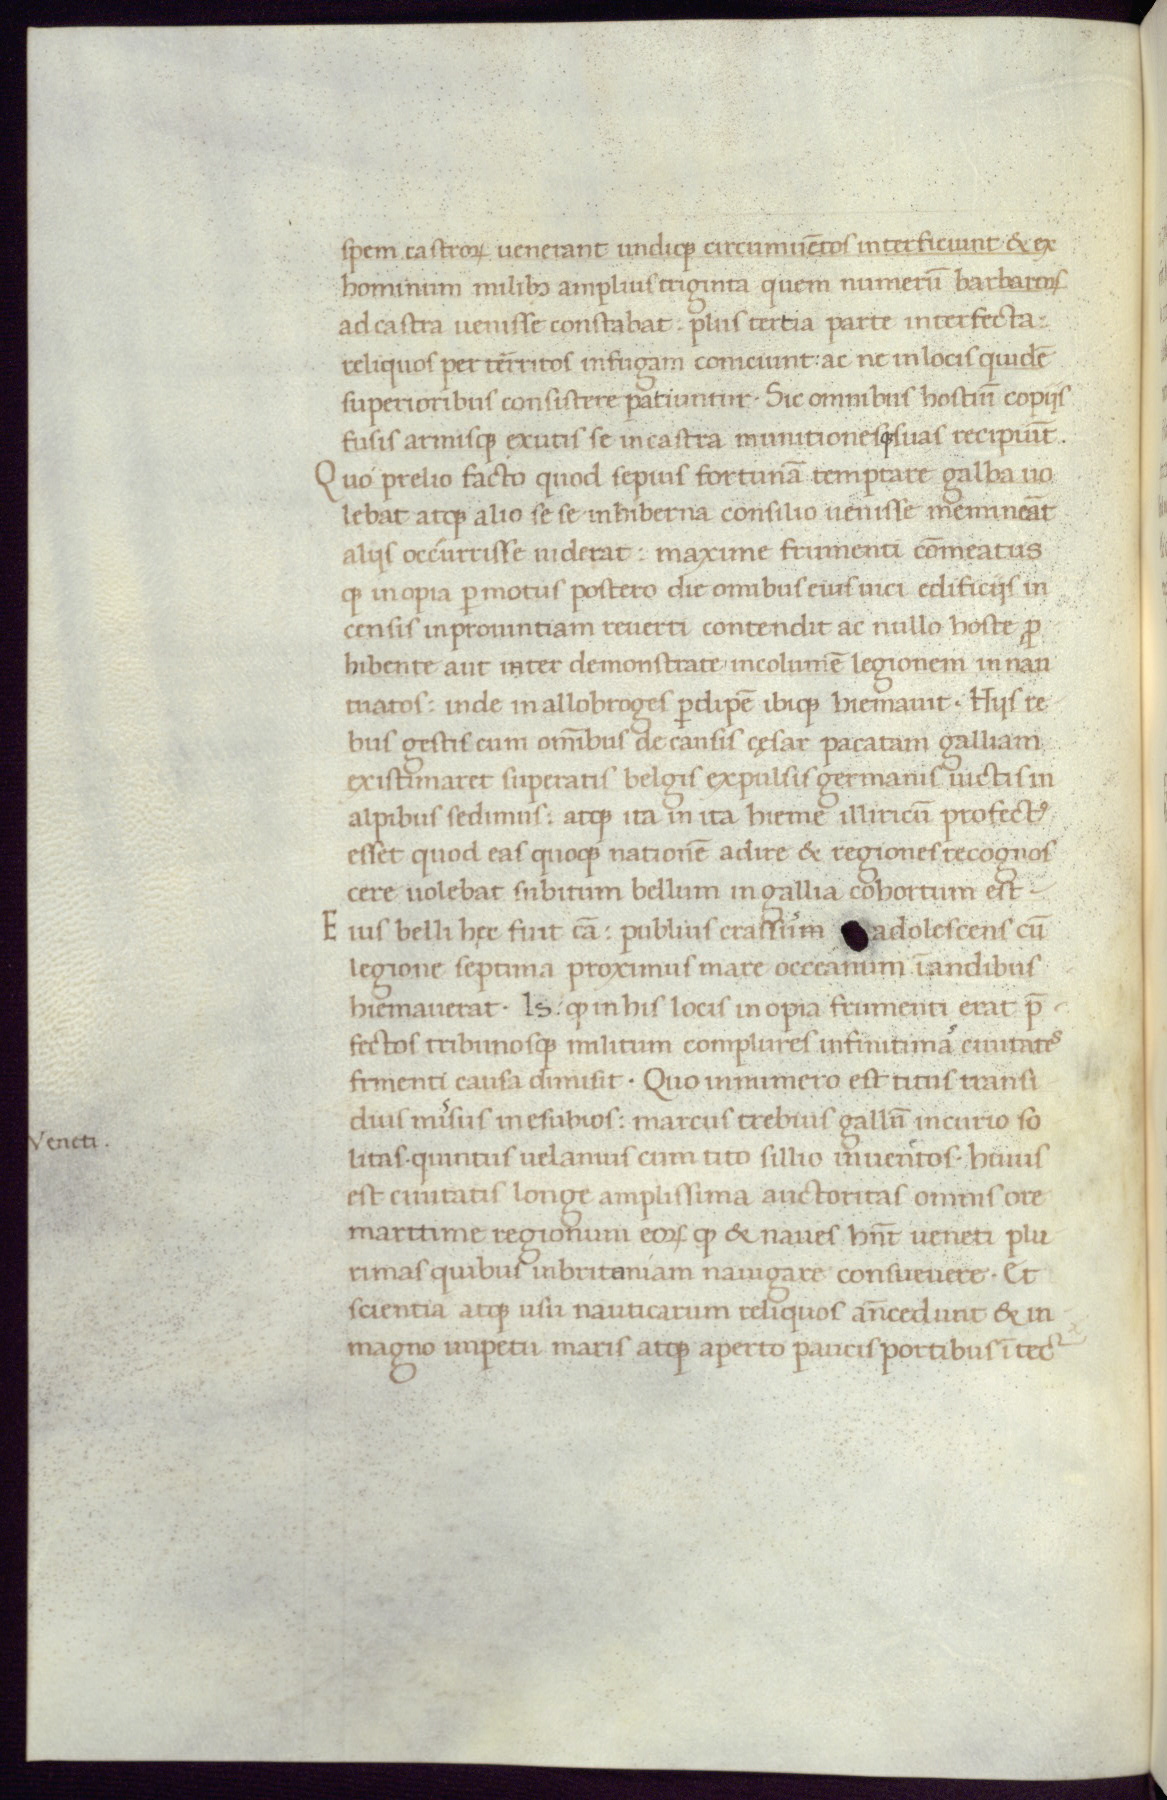 spem castroꝝ venerant undiqꝫ circumuētos interficiunt & ex
hominum milibꝫ amplius triginta quem numerū barbaroꝝ
ad castra uenisse constabat : plus tertia parte interfecta :
reliquos per territos in fugam coniciunt : ac ne in locis quidē
superioribus consistere patiuntur · Sic omnibus hostiū copijs
fusis armisqꝫ exutis se in castra munitionesqꝫ suas recipiūt .
Quo prelio facto quod sepius fortunā temptare galba uo
lebat atqꝫ alio se se in hiberna consilio uenisse memineāt
alijs occurrisse uiderat : maxime frumenti cōmeatus
qꝫ in opia ꝑmotus postero die omibus eius uici edificijs in
censis in prouintiam reuerti contendit ac nullo hoste ꝓ
hibente aut inter demonstrate incolumē legionem in nan
tuatos : inde in allobroges ꝑdipē ibiqꝫ hiemauit · Hijs re
bus gestis cum om̄ibus de causis cęsar pacatam galliam
existimaret superatis belgis expulsis germanis uictis in
alpibus sedimus : atqꝫ ita in ita hieme illiricū profectꝰ
esset quod eas quoqꝫ nationē adire & regiones recognos
cere uolebat subitum bellum in gallia cohortum est
Eius belli hęc fuit cā : publius crassum adolescens cū
legione septima proximus mare occeanum ī andibus
hiemauerat · Is : qꝫ in his locis in opia frumenti erat p̄
fectos tribunosqꝫ militum complures in finitima ciuitates
frmenti causa dimisit · Quo in numero est titus transi
dius misus in esubios : marcus trebius gallū in curio so
Veneti .
litas · quintus uelanuis cum tito sillio in uentos · huius
est ciuitatis longe amplissima auctoritas omnis ore
maritime regionum eoꝝ qꝫ & naues hn̄t ueneti plu
rimas quibus in britaniam nauigare consueuere · Et
scientia atqꝫ usu nauticarum reliquos an̄cedunt & in
magno impetu maris atqꝫ aperto paucis portibus ī tec